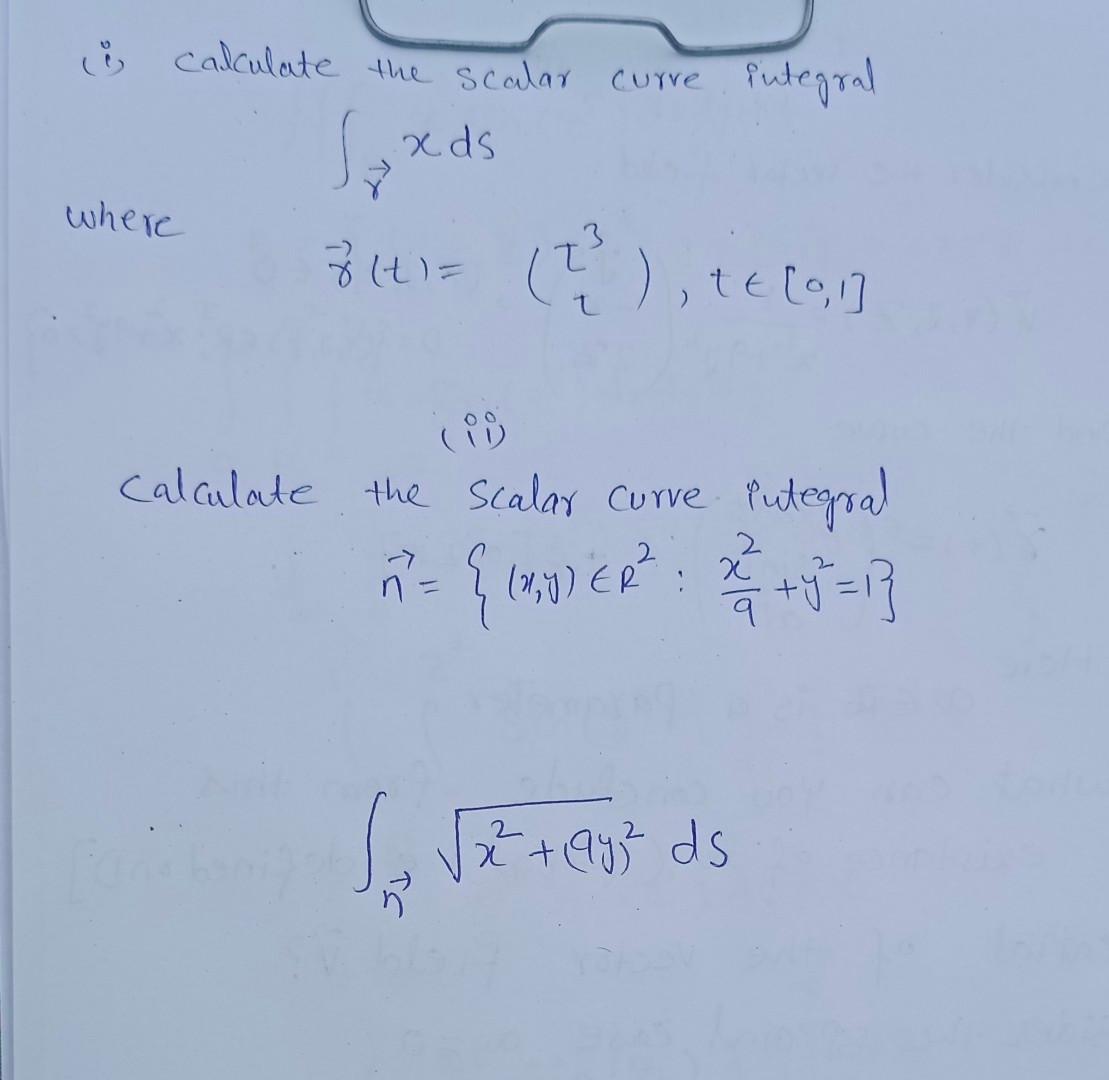 (i) calculate the scalar curve integral
∫_γ⃗ x ds
where
γ⃗(t) = (t³
t), t ∈ [0,1]
(ii)
Calculate the scalar curve integral
n⃗ = { (x,y) ∈ R² : x²/9 + y² = 1}
∫_n⃗ √x² + (9y)² ds